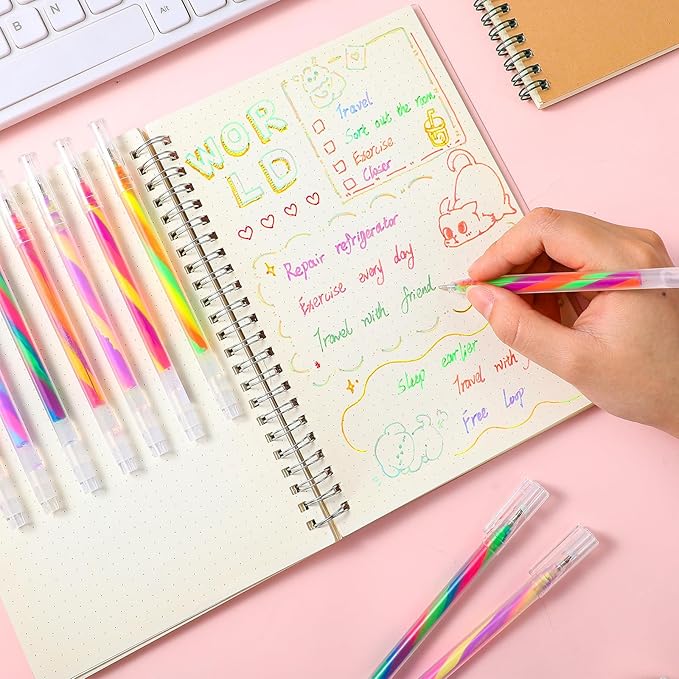 B N
WOR
LD
Travel
Sort out the room
Exercise
Closer
Repair refrigerator
Exercise every day
Travel with friend
Sleep earlier
Travel with
Free loop